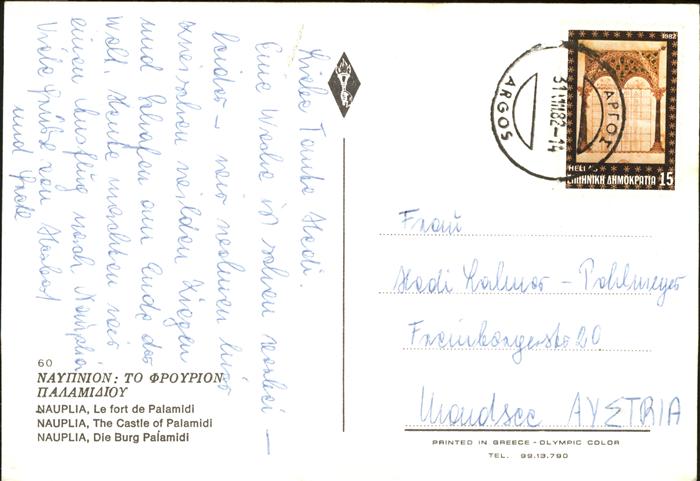 Liebe Tante Hedi.
Eine Woche ist schon vorbei –
leider – wir wohnen hier
zwischen wilden Ziegen
und Schafen am Ende der
Welt. Heute machten wir
einen Ausflug nach Nauplia
Viele Grüße von Herbert
und
60
ΝΑΥΠΝΙΟΝ: ΤΟ ΦΡΟΥΡΙΟΝ
ΠΑΛΑΜΙΔΙΟΥ
NAUPLIA, Le fort de Palamidi
NAUPLIA, The Castle of Palamidi
NAUPLIA, Die Burg Palamidi
1982
ΑΡΓΟΣ
31.VIII.82-14
ARGOS
HELLAS
ΕΛΛΗΝΙΚΗ ΔΗΜΟΚΡΑΤΙΑ 15
Frau
Hedi - Pohlmeyer
20
Mondsee ΑΥΣΤRIA
PRINTED IN GREECE - OLYMPIC COLOR
TEL. 99.13.790